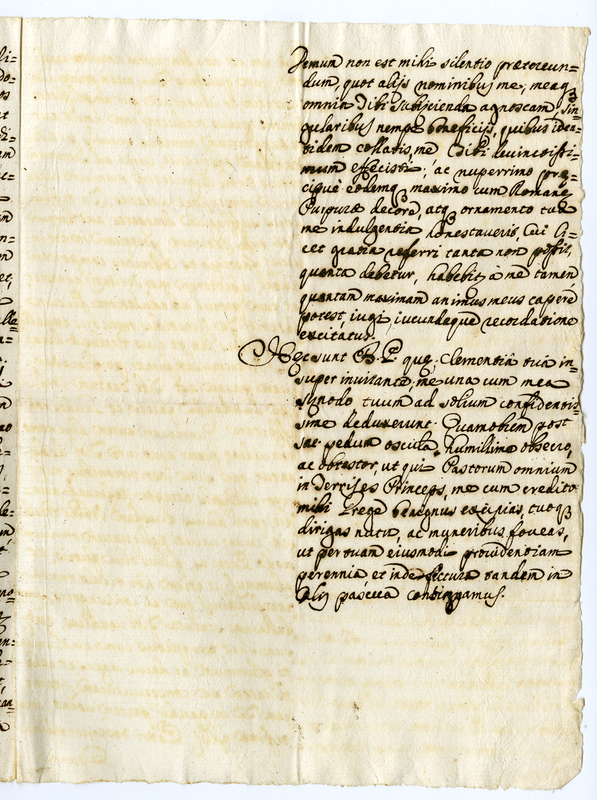 Demum non est mihi silentio prætereun=
dum, quot alijs nominibus me, meaq3
omnia Tibi subijcienda agnoscam, sin=
gularibus nempe beneficijs, quibus iden=
tidem collatis, me Tibi devinctissi=
mum effecisti; ac nuperrimo præ=
cipuè eodemq3 maximo cum Romanæ
Purpuræ decore, atq3 ornamento tua
me indulgentia honestaveris, cui li=
cet gratia referri tanta non possit,
quanta debetur, habebit, à me tamen
quantam maximam animus meus capere
potest, iugi, iucundaque recordatione
excitatus.
Hæc sunt B. P. que, Clementiâ tua in=
super invitante, me una cum mea
synodo tuum ad solium confidentis=
sime deduxerunt. Quamobrem post
pedum oscula, humillime obsecro,
ac obtestor, ut qui Pastorum omnium
in Terris es Princeps, me cum credito
mihi Grege benignus excipias, tuoq3
dirigas nutu, ac muneribus foveas,
ut per tuam eiusmodi providentiam
perennia et tandem in
pascua contingamus.